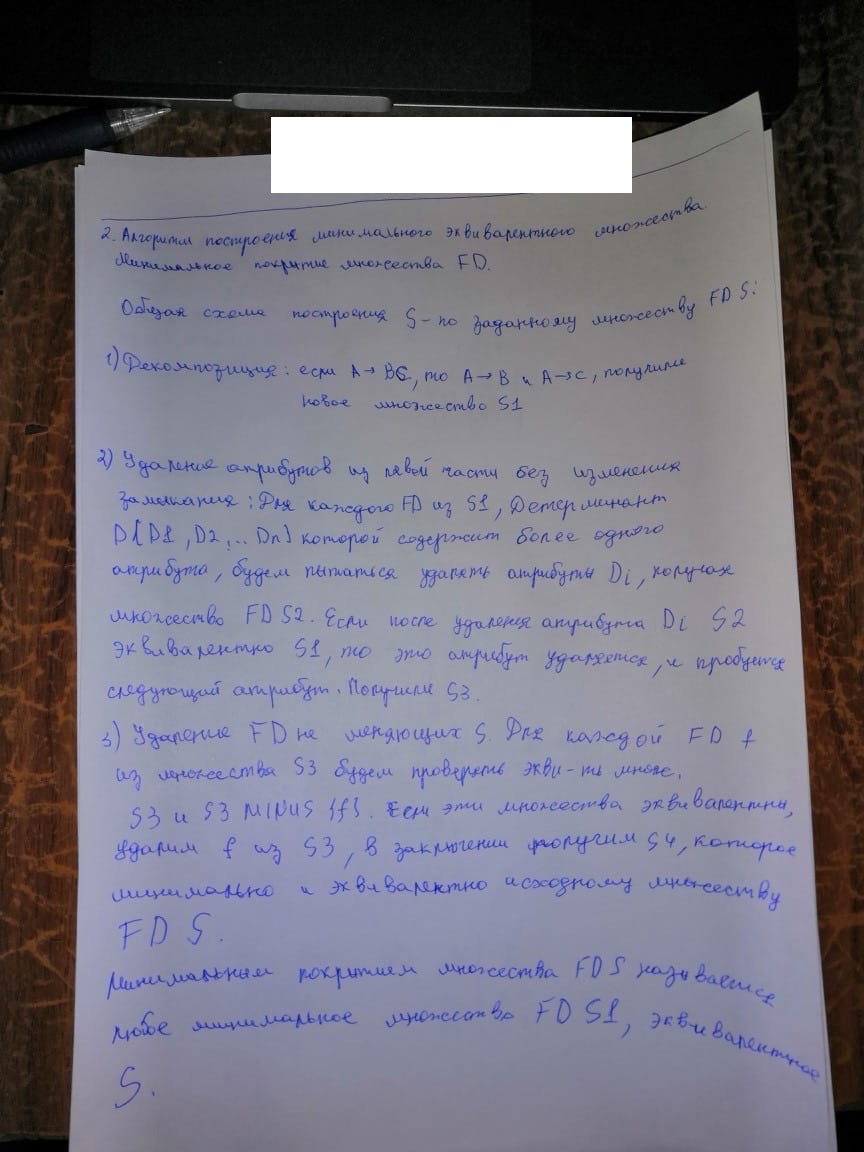 2. Алгоритм построения минимального эквивалентного множества.
Минимальное покрытие множества FD.
Общая схема построения S- по заданному множеству FD S:
1) Декомпозиция: если A→BC, то A→B и A→C, получили
новое множество S1
2) Удаление атрибутов из левой части без изменения
замыкания: Для каждого FD из S1, Детерминант
D{D1, D2, .. Dn} которой содержит более одного
атрибута, будем пытаться удалять атрибуты Di, получая
множество FD S2. Если после удаления атрибута Di S2
эквивалентно S1, то это атрибут удаляется, и пробуется
следующий атрибут. Получили S3.
3) Удаление FD не меняющих S. Для каждой FD f
из множества S3 будем проверять экви-ть множ.
S3 и S3 MINUS {f}. Если эти множества эквивалентны,
удалим f из S3, в заключении получим S4, которое
минимально и эквивалентно исходному множеству
FD S.
Минимальным покрытием множества FD S называется
любое минимальное множество FD S1, эквивалентное
S.